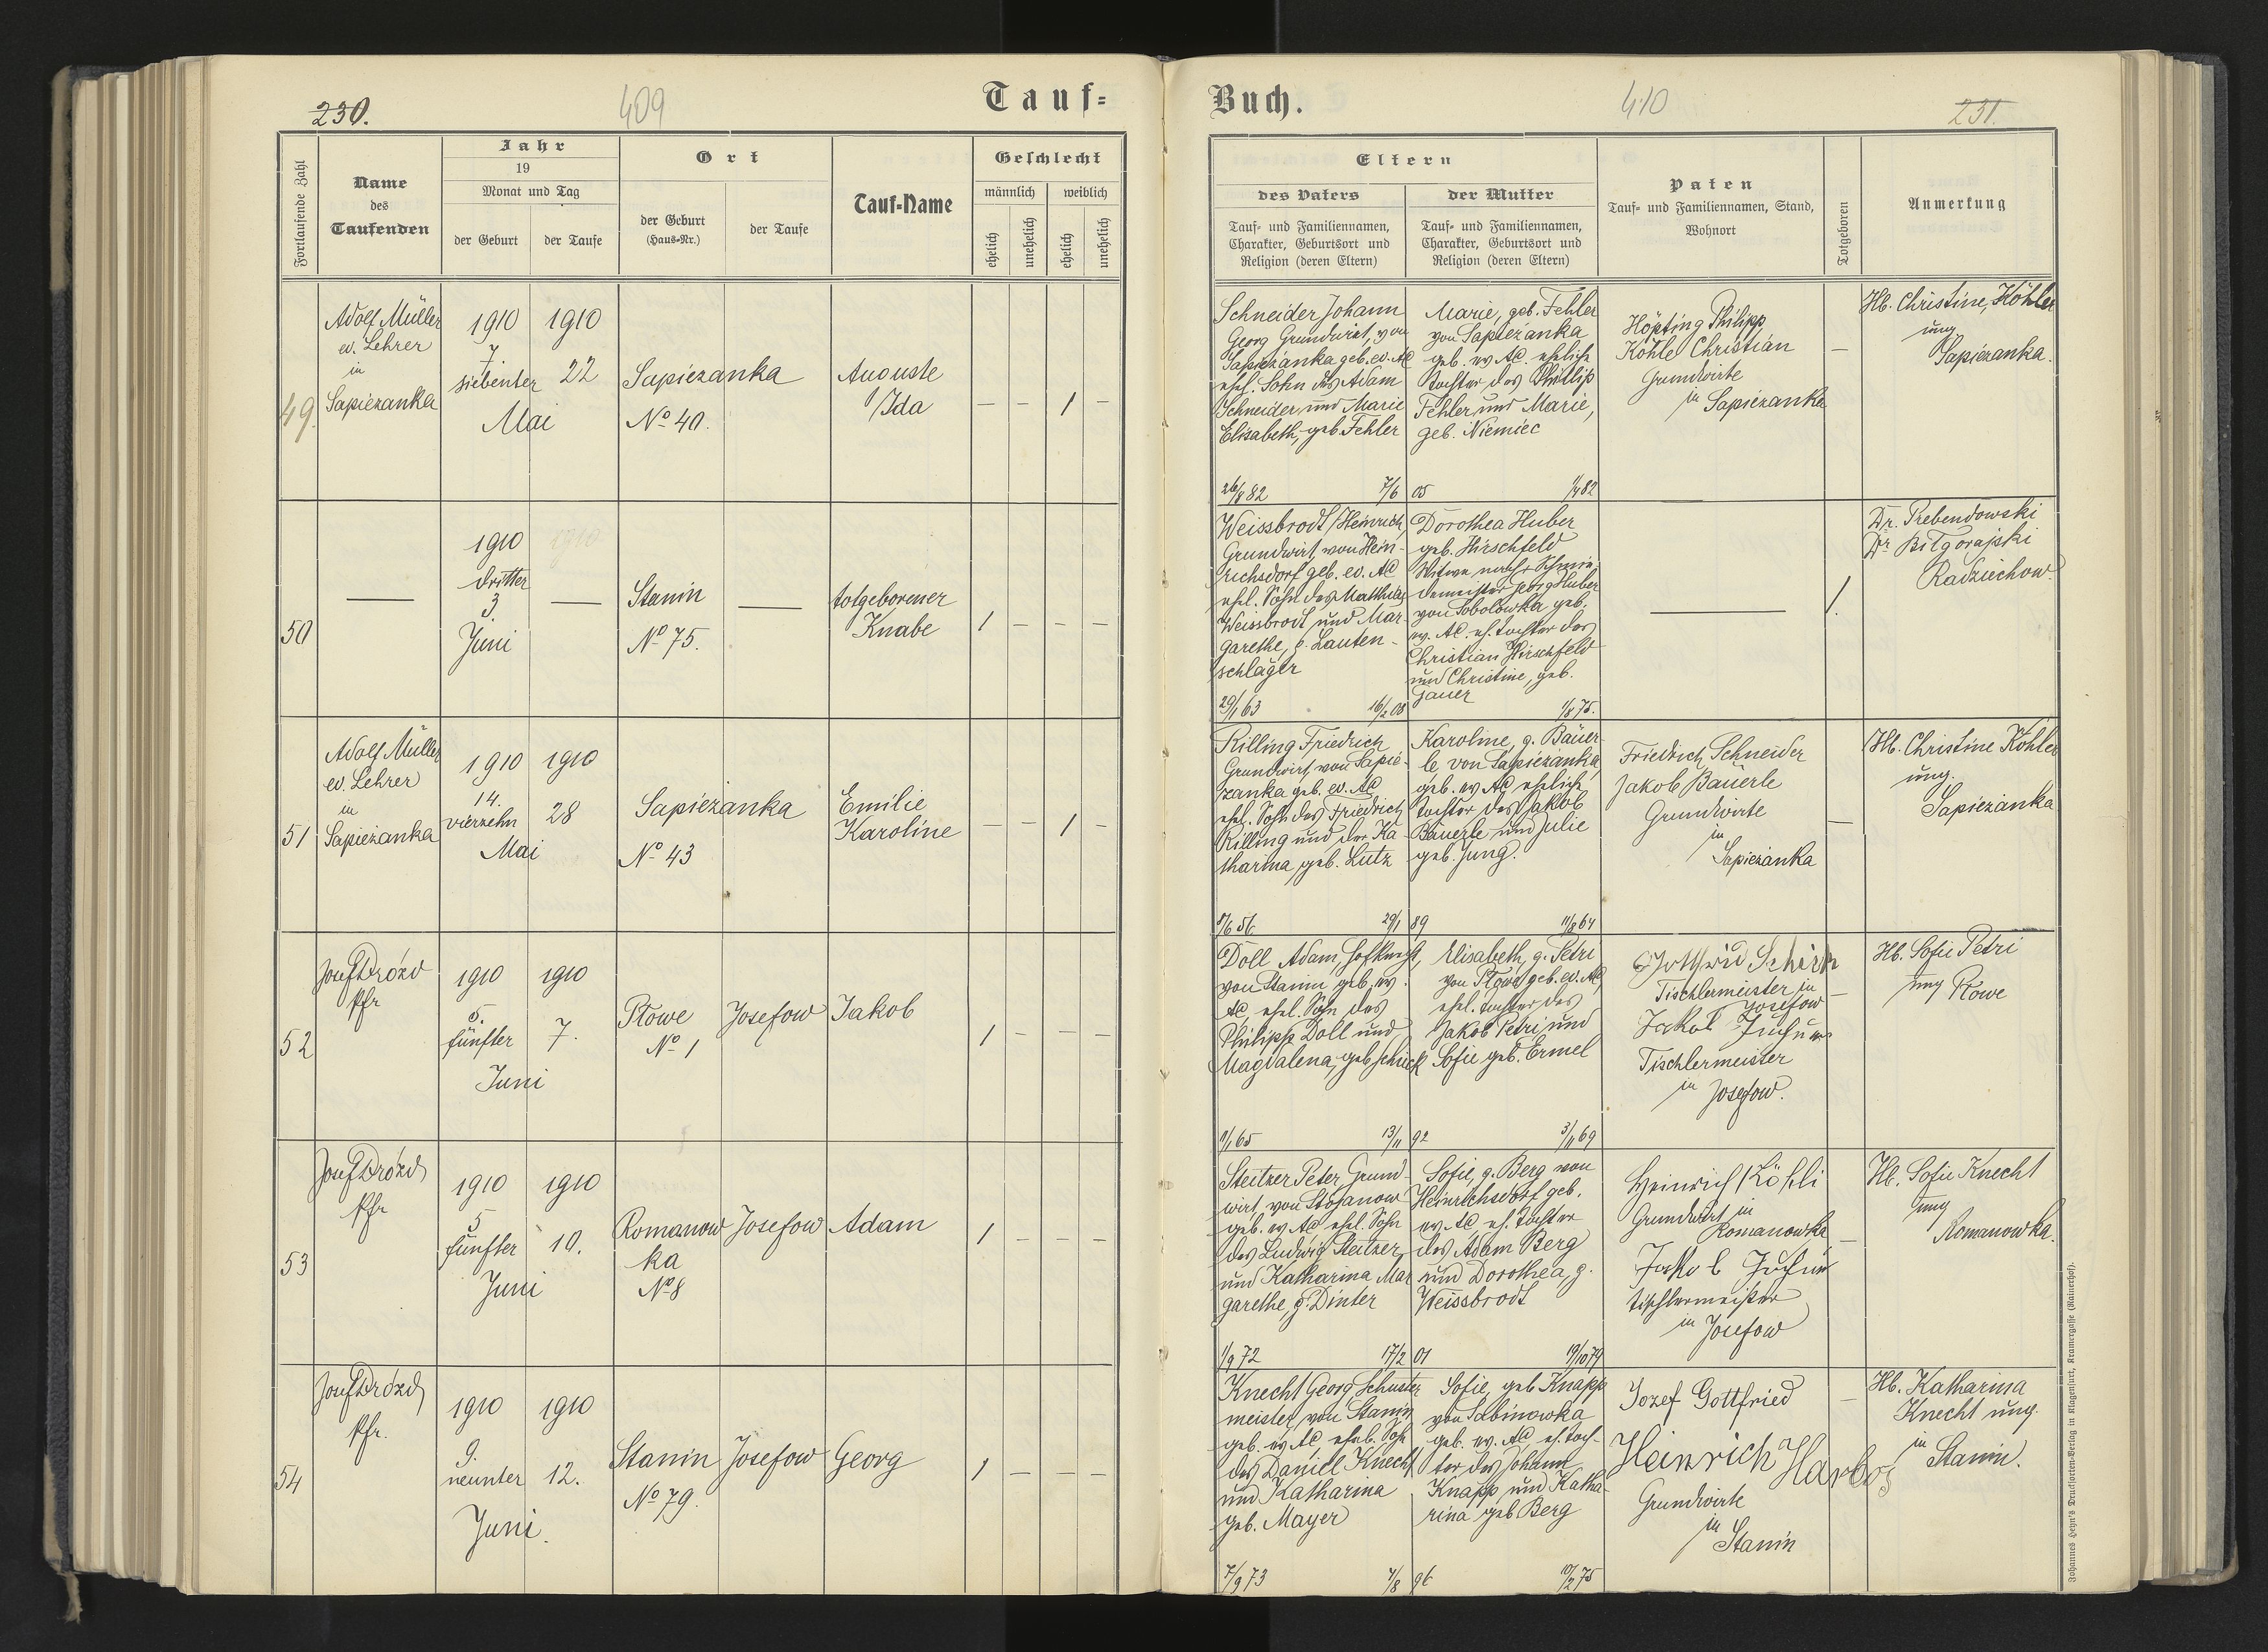 230.
409
Tauf=
Fortlaufende Zahl
Name
des
Taufenden
Jahr
19
Monat und Tag
der Geburt
der Taufe
Ort
der Geburt
(Haus=Nr.)
der Taufe
Tauf=Name
Geschlecht
männlich
weiblich
ehelich
unehelich
ehelich
unehelich
49.
Adolf Müller
ev. Lehrer
in
Sapiezanka
1910
7.
siebenter
Mai
1910
22
Sapiezanka
No 40.
Auguste
Ida
— — 1 —
50
—
1910
dritter
3.
Juni
1910
—
Stanin
No 75.
—
totgeborener
Knabe
1 — — —
51
Adolf Müller
ev. Lehrer
in
Sapiezanka
1910
14.
vierzehn
Mai
1910
28
Sapiezanka
No 43
Emilie
Karoline
— — 1 —
52
Josef Drózd
Pfr
1910
5.
fünfter
Juni
1910
7.
Płowe
No 1
Josefow
Jakob
1 — — —
53
Josef Drózd
Pfr
1910
5
fünfter
Juni
1910
10.
Romanow
ka
No 8
Josefow
Adam
1 — — —
54
Josef Drózd
Pfr.
1910
9.
neunter
Juni.
1910
12.
Stanin
No 79.
Josefow
Georg
1 — — —
Buch.
410
231.
Eltern
des Vaters
Tauf= und Familiennamen,
Charakter, Geburtsort und
Religion (deren Eltern)
der Mutter
Tauf= und Familiennamen,
Charakter, Geburtsort und
Religion (deren Eltern)
Paten
Tauf= und Familiennamen, Stand,
Wohnort
Totgeboren
Anmerkung
Schneider Johann
Georg Grundwirt, von
Sapiezanka geb. ev. AC
ehel. Sohn des Adam
Schneider und Marie
Elisabeth, geb. Fehler
26/8 82
7/6
Marie, geb. Fehler
von Sapiezanka
geb. ev AC ehelich
Tochter des Phillip
Fehler und Marie,
geb. Niemiec
05
Höpting Philipp
Köhle Christian
Grundwirte
in Sapiezanka
—
Hb. Christine, Köhler
ung
Sapiezanka.
Weissbrodt Heinrich,
Grundwirt, von Hein-
richsdorf geb. ev. AC
ehel. Sohn des Mathias
Weissbrodt und Mar-
garethe, g. Lauten-
schläger
29/1 63
16/2 08
Dorothea Huber
geb. Hirschfeld
Witwe nach + Schmie-
demeister Georg Huber
von Sobolowka geb.
ev. AC. eh. Tochter des
Christian Hirschfeld
und Christine, geb.
Gauer
1/8 75.
—
1.
Dr. Trebendowski
Dr Bilgorajski
Radziechow.
Killing Friedrich
Grundwirt, von Sapie-
zanka geb. ev. AC
ehel. Sohn des Friedrich
Killing und der Ka-
tharina, geb. Lutz
29/1
Karoline, g. Bäuer-
le von Sapiezanka,
geb. ev AC ehelich
Tochter des Jakob
Bäuerle und Julie
geb. Jung.
89
11/8 64
Friedrich Schneider
Jakob Bäuerle
Grundwirte
in
Sapiezanka
—
Hb. Christine Köhler
ung.
Sapiezanka
Doll Adam, Hofknecht,
von Stanin geb. ev.
AC, ehel. Sohn des
Philipp Doll und
Magdalena, geb Schick
1/1 65
13/11
Elisabeth, g. Petri
von Płowe geb. ev. AC
ehel. Tochter des
Jakob Petri und
Sofie geb. Ermel
92
3/11 69
Gottfried Schick
Tischlermeister in
Josefow
Jakob
Tischlermeister
in Josefow.
—
Hb. Sofie Petri
ung Płowe
Steitzer Peter Grund-
wirt, von Stojanow
geb. ev AC ehel. Sohn
des Ludwig Steitzer
und Katharina Mar
garethe, g. Dinter
1/9 72
17/2
Sofie, g. Berg von
Heinrichsdorf geb.
ev AC, eh. Tochter
des Adam Berg
und Dorothea, g.
Weissbrodt
01
19/10 79
Heinrich Köhli
Grundwirt in
Romanowka
Jakob
Tischlermeister
in Josefow
—
Hb. Sofie Knecht
ung
Romanowka.
Knecht Georg Schuster
meister, von Stanin
geb. ev AC ehel. Sohn
des Daniel Knecht
und Katharina
geb. Mayer
7/9 73
Sofie, geb Knapp
von Sabinowka
geb. ev. AC eh. Toch-
ter des Johann
Knapp und Katha-
rina geb Berg
96
10/2 75
Jozef Gottfried
Heinrich Harlos
Grundwirte
in
Stanin
—
Hb. Katharina
Knecht ung.
in Stanin.
Johannes Heyn's Drucksorten=Verlag in Klagenfurt, Kramergasse (Rainerhof).